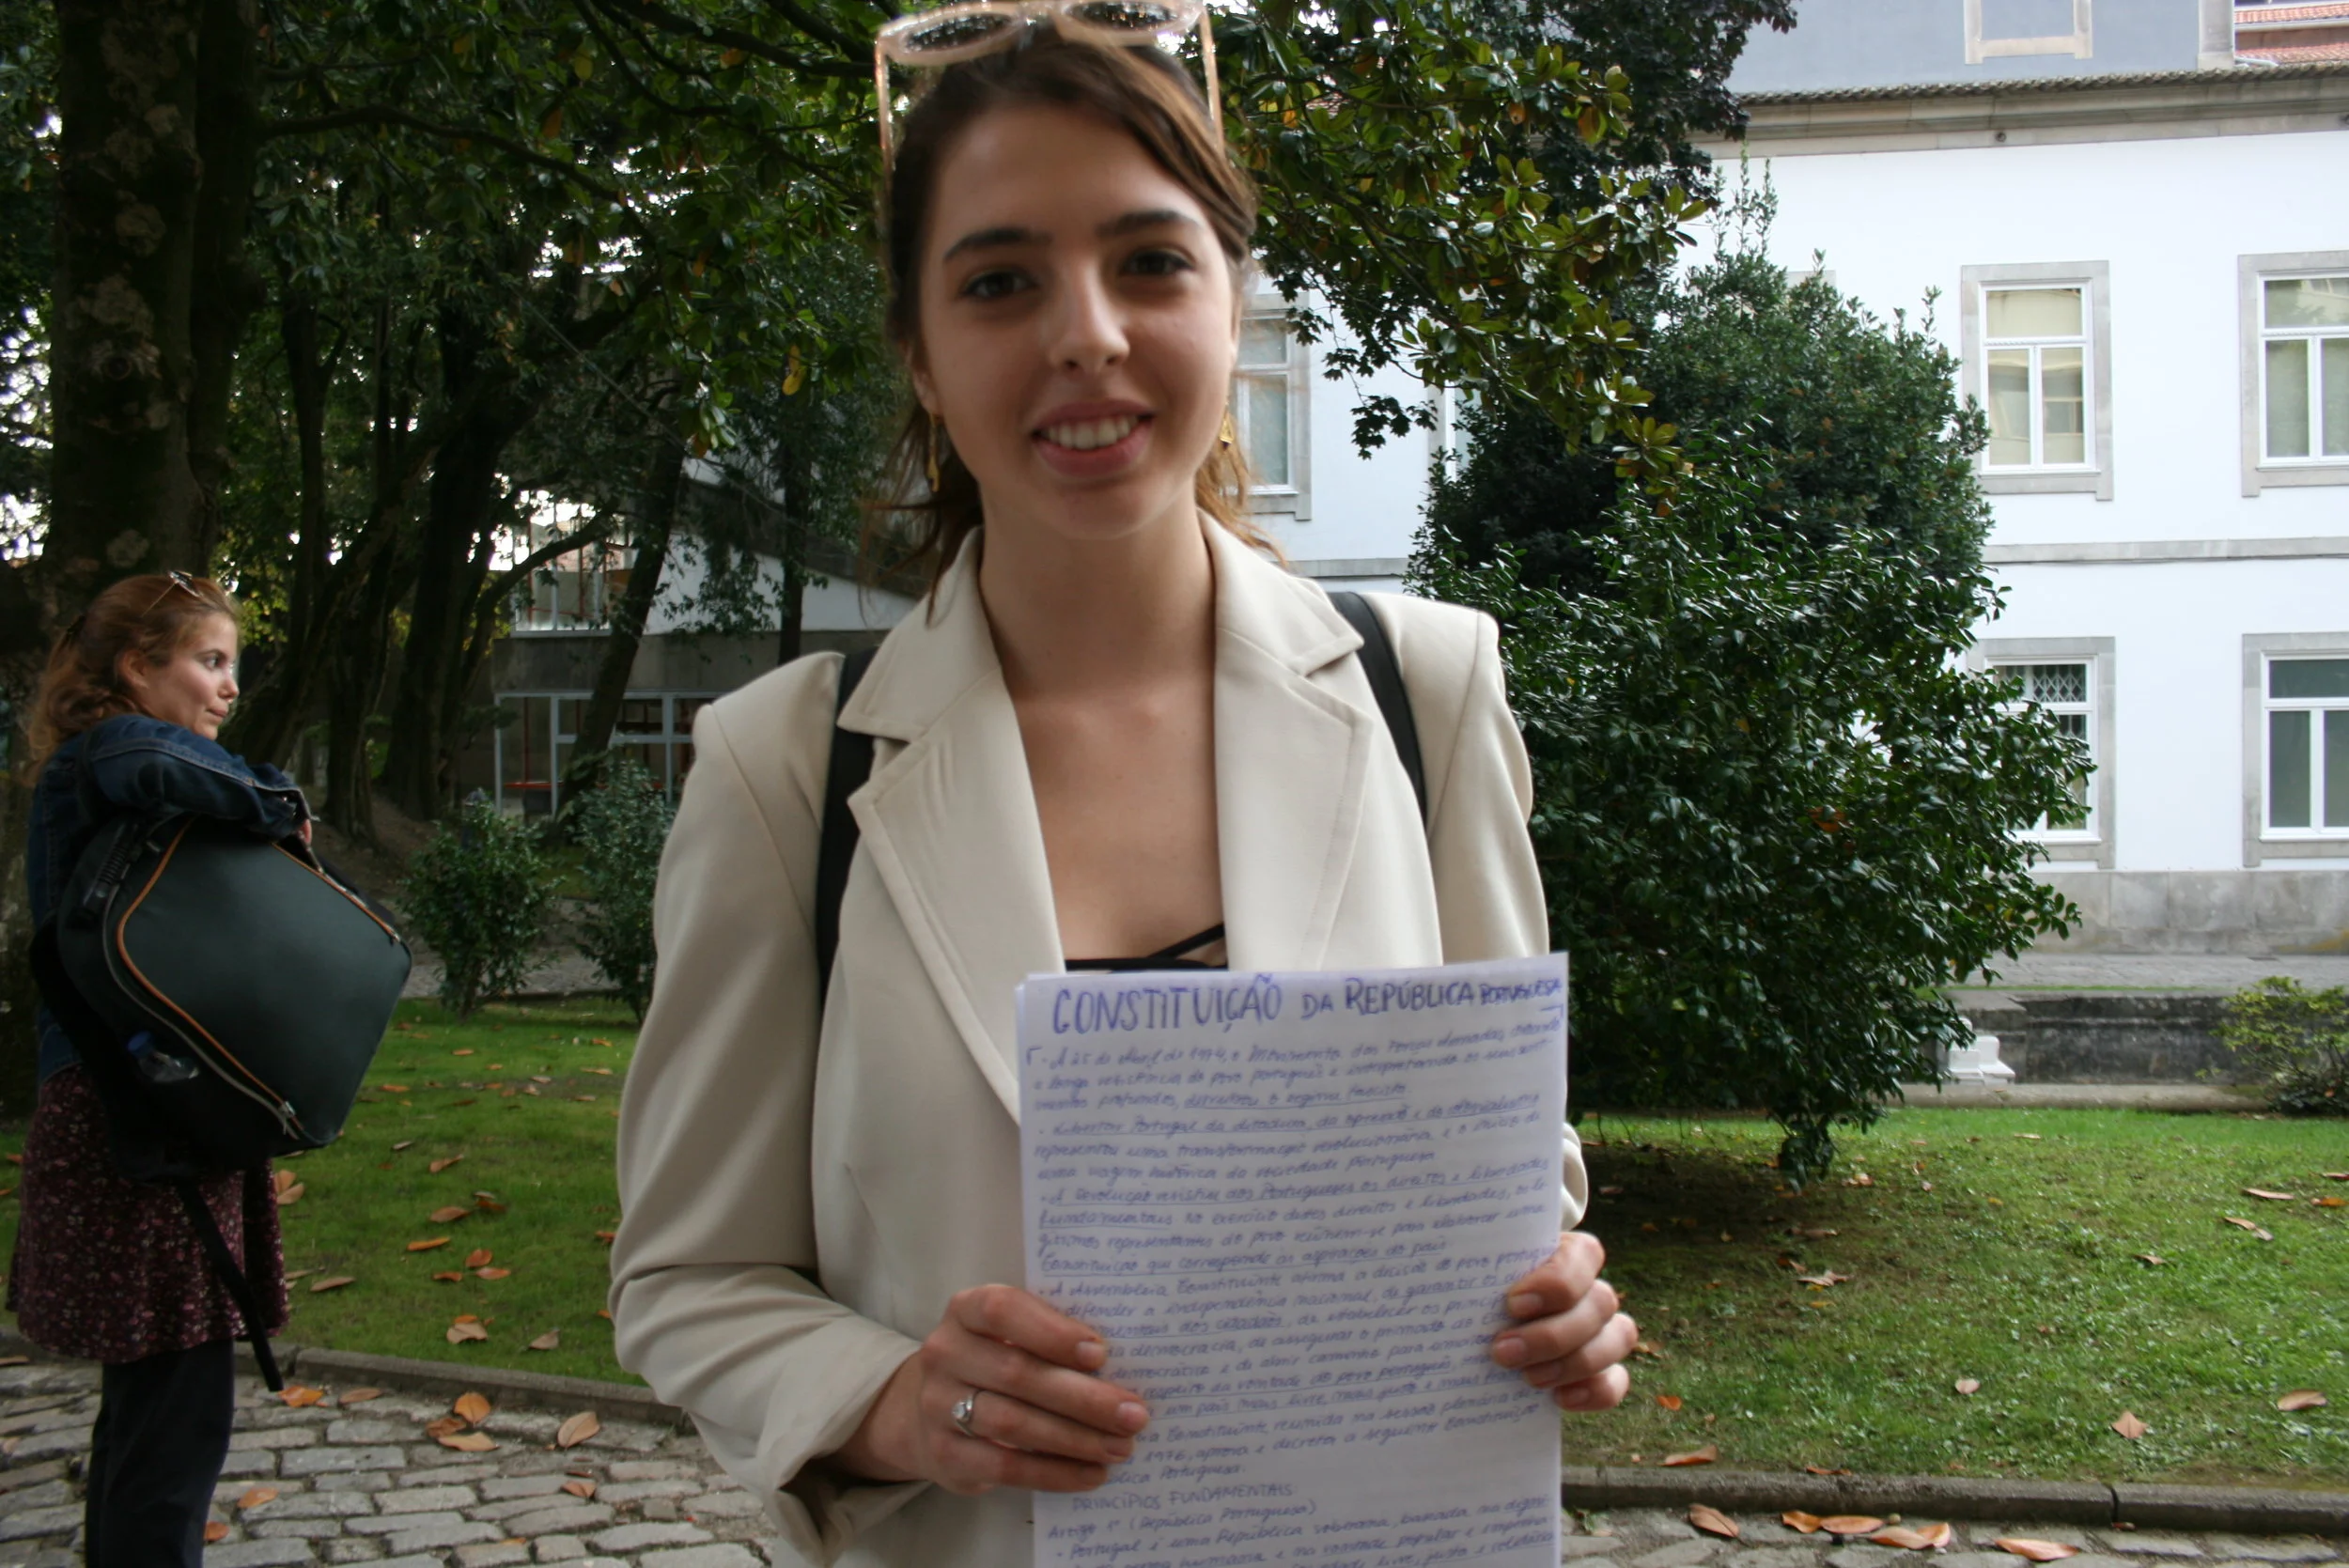 CONSTITUIÇÃO DA REPÚBLICA PORTUGUESA
• A 25 de Abril de 1974, o Movimento das Forças Armadas, coroando
a longa resistência do povo português e interpretando os seus senti-
mentos profundos, derrubou o regime fascista
• Libertar Portugal da ditadura, da opressão e do colonialismo
representou uma transformação revolucionária e o início de
uma viragem histórica da sociedade portuguesa.
• A Revolução restitui aos Portugueses os direitos e liberdades
fundamentais no exercício destes direitos e liberdades, os le-
gítimos representantes do povo reúnem-se para elaborar uma
Constituição que corresponde às aspirações do país
• A Assembleia Constituinte afirma a decisão do povo portugu
defender a independência nacional, de garantir os di
mentais dos cidadãos, de estabelecer os princíp
da democracia, de assegurar o primado do
democrático e de abrir caminho para uma
respeito da vontade do povo português,
um país mais livre, mais justo e mais frat
Constituinte, reunida na sessão plenária de
1976, aprova e decreta a seguinte Constituição
Portuguesa:
PRINCÍPIOS FUNDAMENTAIS:
Artigo 1º (República Portuguesa)
• Portugal é uma República soberana, baseada na digni-
humana e na vontade popular e empenha
livre, justa e solidária